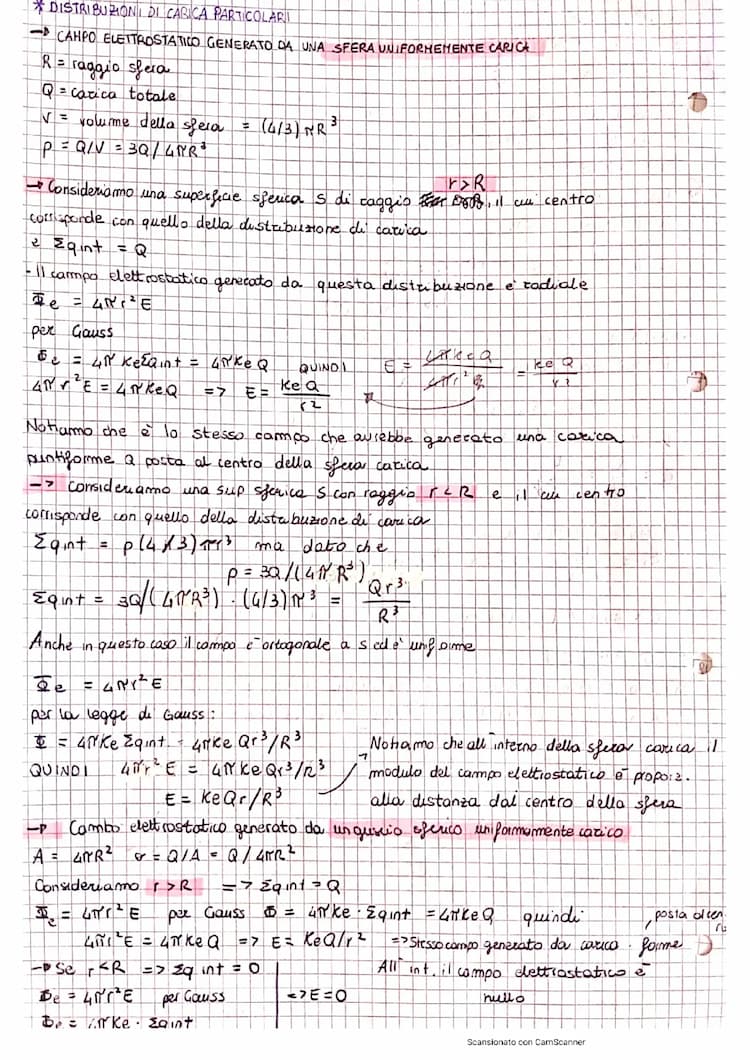 * DISTRIBUZIONI DI CARICA PARTICOLARI
→ CAMPO ELETTROSTATICO GENERATO DA UNA SFERA UNIFORMEMENTE CARICA
R = raggio sfera
Q = carica totale
V = volume della sfera = (4/3)πR³
ρ = Q/V = 3Q/4πR³
→ Consideriamo una superficie sferica S di raggio r>R, il cui centro
corrisponde con quello della distribuzione di carica
e Σqint = Q
- Il campo elettrostatico generato da questa distribuzione è radiale
Φe = 4πr²E
per Gauss
Φe = 4π Ke Σqint = 4πKe Q QUINDI E = 4πKeQ / 4πr² = Ke Q / r²
4πr²E = 4πKeQ => E = Ke Q / r²
Notiamo che è lo stesso campo che avrebbe generato una carica
puntiforme Q posta al centro della sfera carica
→ consideriamo una sup sferica S con raggio r<R e il cui centro
corrisponde con quello della distribuzione di carica
Σqint = ρ(4/3)πr³ ma dato che
ρ = 3Q/(4πR³)
Σqint = 3Q/(4πR³) · (4/3)πr³ = Qr³ / R³
Anche in questo caso il campo è ortogonale a S ed è uniforme
Φe = 4πr²E
per la legge di Gauss:
Φ = 4πKe Σqint = 4πKe Qr³/R³
QUINDI 4πr²E = 4πKeQr³/R³
E = KeQr/R³
Notiamo che all'interno della sfera carica il
modulo del campo elettrostatico è proporz.
alla distanza dal centro della sfera
→ Campo elettrostatico generato da un guscio sferico uniformemente carico
A = 4πR² σ = Q/A = Q/4πR²
Consideriamo r>R => Σqint = Q
Φe = 4πr²E per Gauss Φ = 4πKe · Σqint = 4πKeQ quindi
4πr²E = 4πKeQ => E = KeQ/r² => Stesso campo generato da carica forme
→ Se r<R => Σq int = 0
Φe = 4πr²E per Gauss => E=0
Φe = 4πKe · Σqint
All'int. il campo elettrostatico è
nullo
Scansionato con CamScanner